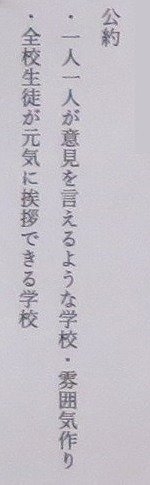 公約
・一人一人が意見を言えるような学校・雰囲気作り
・全校生徒が元気に挨拶できる学校